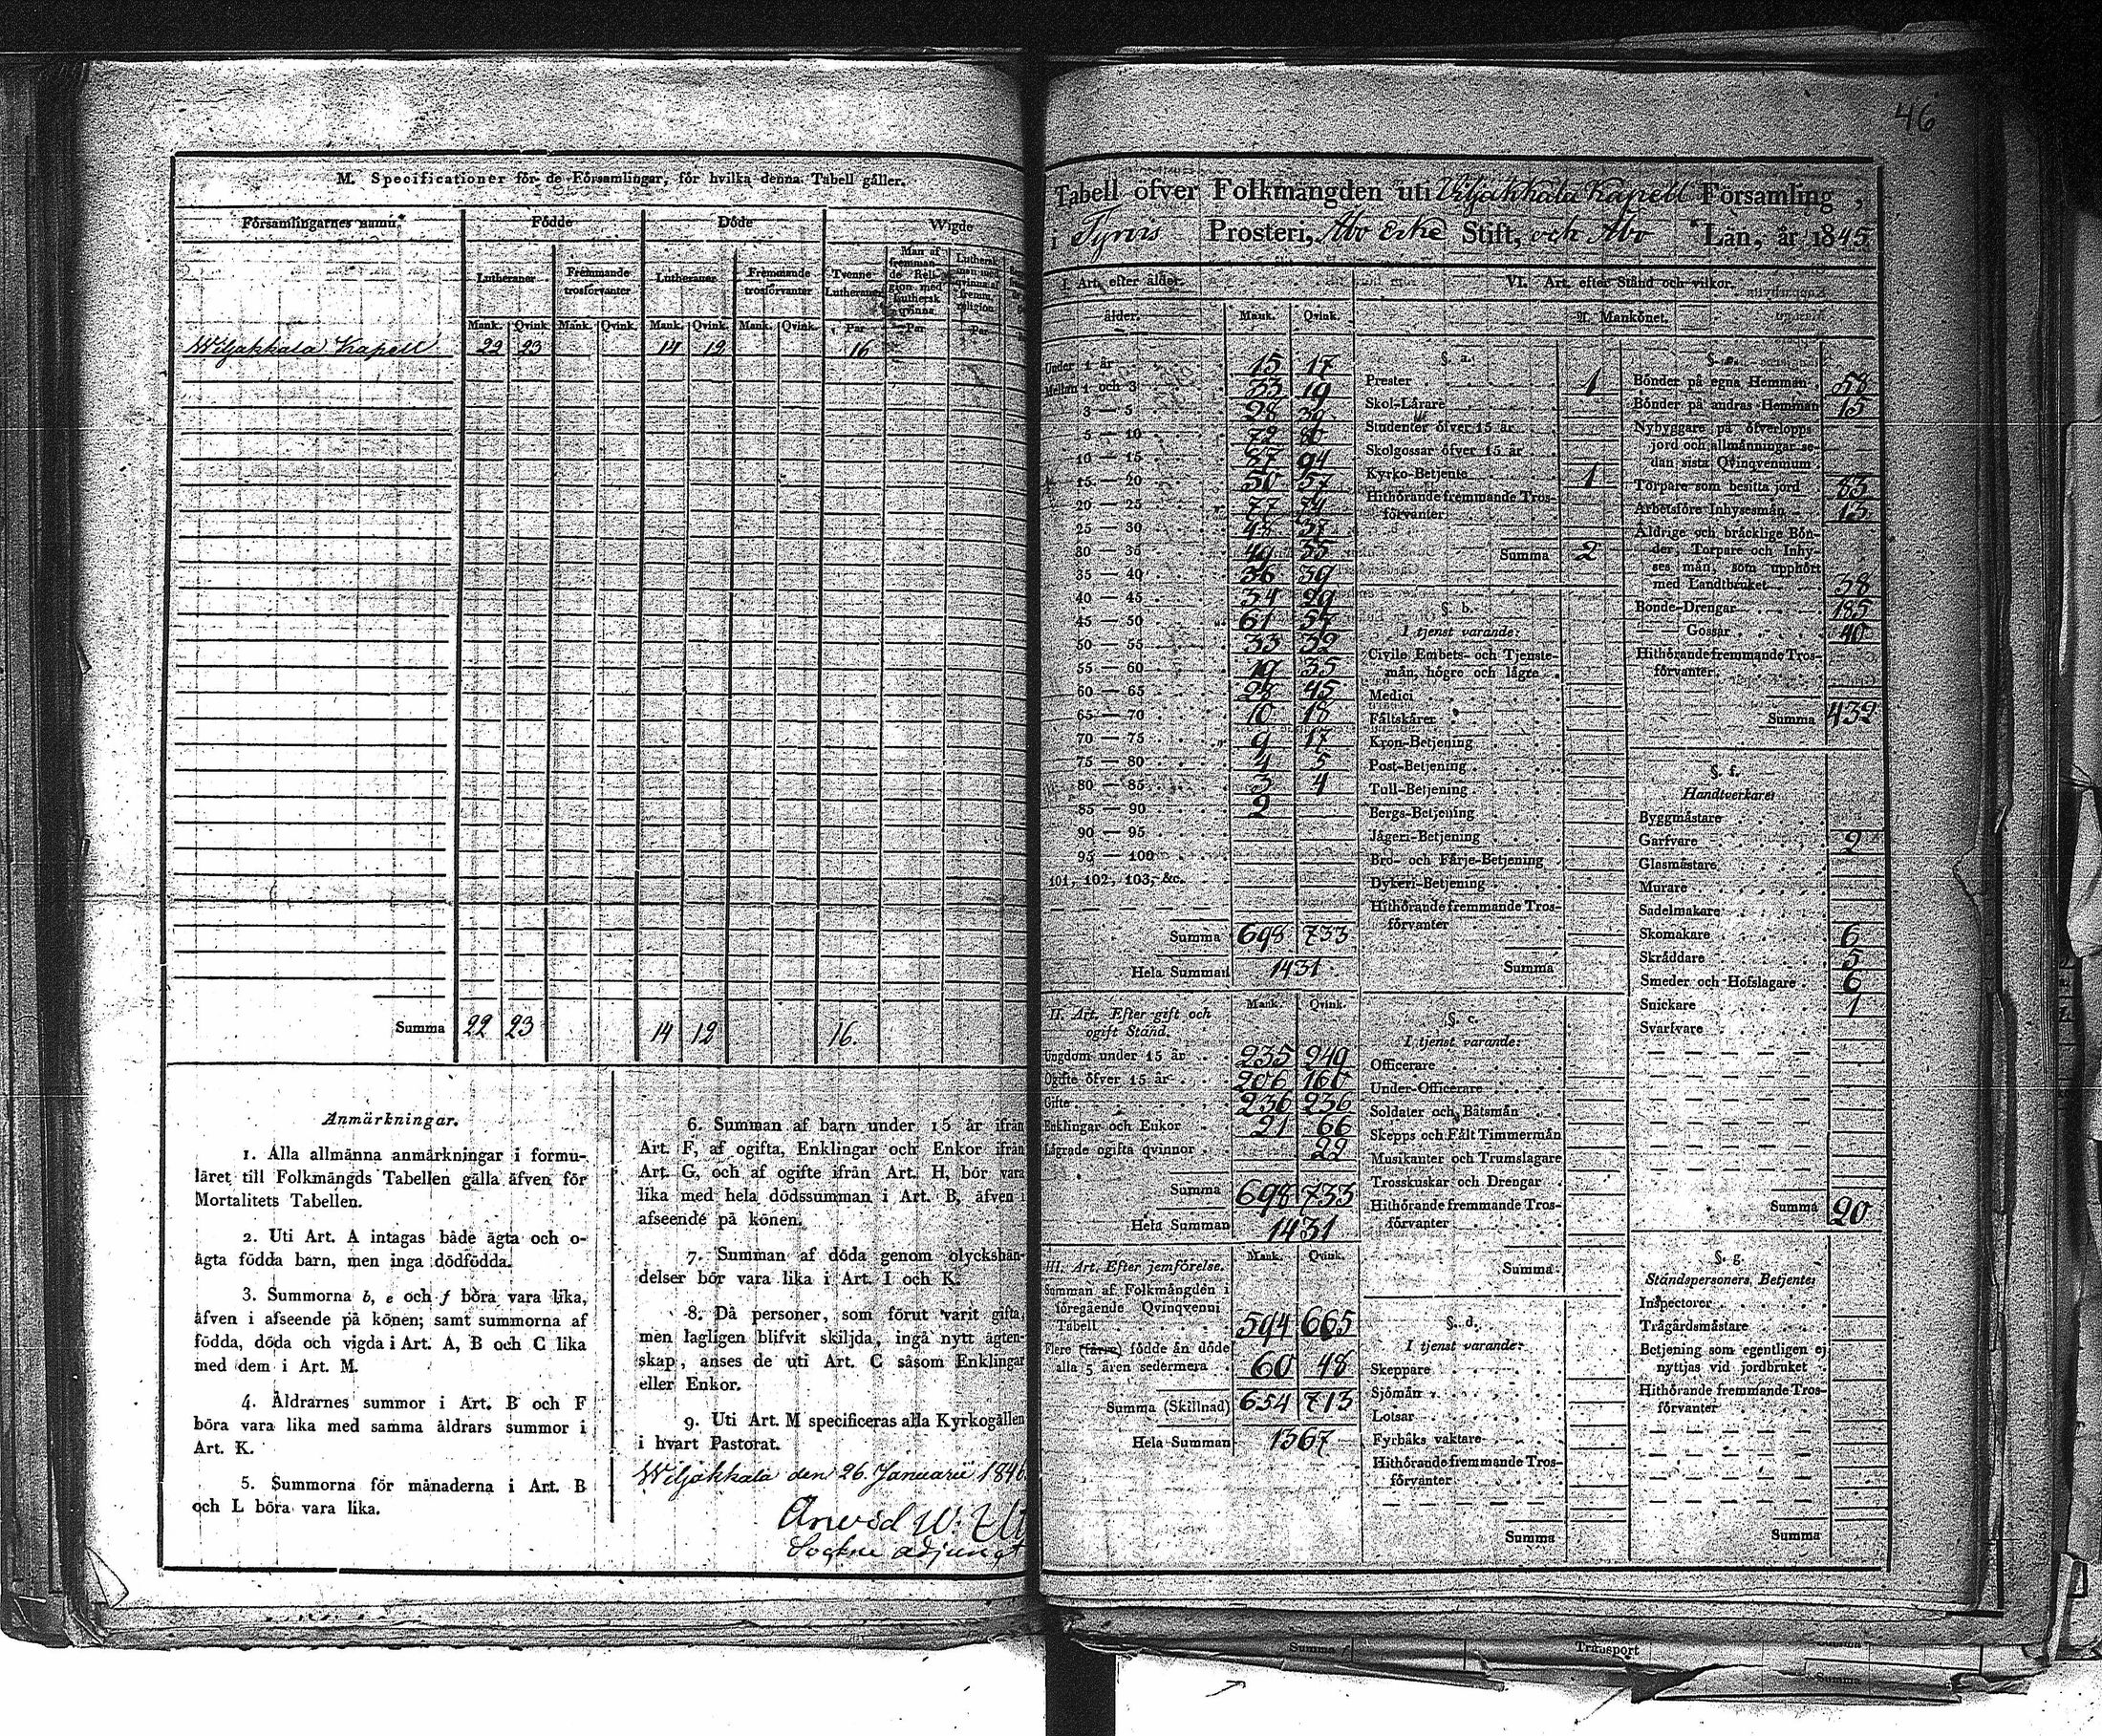 M. Specificationer för de Församlingar, för hvilka denna Tabell gäller.
Församlingarnes namn.
Födde
Döde
Wigde
Lutheraner
Främmande trosförvanter
Lutheraner
Främmande trosförvanter
Tvenne Lutheraner
Mank. Qvink. Mank. Qvink. Mank. Qvink. Mank. Qvink. Par Par Par
Wiljakkala Kapell 22 23 14 12 16
Summa 22 23 14 12 16.
Anmärkningar.
1. Alla allmänna anmärkningar i formu-
läret till Folkmängds Tabellen gälla äfven för
Mortalitets Tabellen.
2. Uti Art. A intagas både ägta och o-
ägta födda barn, men inga dödfödda.
3. Summorna b, e och f böra vara lika,
äfven i afseende på könen; samt summorna af
födda, döda och vigda i Art. A, B och C lika
med dem i Art. M.
4. Åldrarnes summor i Art. B och F
böra vara lika med samma åldrars summor i
Art. K.
5. Summorna för månaderna i Art. B
och L böra vara lika.
6. Summan af barn under 15 år ifrån
Art. F, af ogifta, Enklingar och Enkor ifrån
Art. G, och af ogifte ifrån Art. H, bör vara
lika med hela dödssumman i Art. B, äfven i
afseende på könen.
7. Summan af döda genom olyckshän-
delser bör vara lika i Art. I och K.
8. Då personer, som förut varit gifta,
men lagligen blifvit skiljda, ingå nytt ägten-
skap, anses de uti Art. C såsom Enklingar
eller Enkor.
9. Uti Art. M specificeras alla Kyrkogällen
i hvart Pastorat.
Wiljakkala den 26. Januarii 1846.
Arvid W.
Sockne adjunct
46
Tabell öfver Folkmängden uti Viljakkala Kapell Församling,
i Tyrvis Prosteri, Åbo Erke Stift, och Åbo Län, år 1845.
I. Art. efter ålder.
ålder. Mank. Qvink.
Under 1 år 15 17
Mellan 1 och 3 33 19
3 — 5 28 39
5 — 10 72 80
10 — 15 87 94
15 — 20 50 57
20 — 25 77 74
25 — 30 48 37
30 — 35 49 35
35 — 40 36 39
40 — 45 34 29
45 — 50 61 37
50 — 55 33 32
55 — 60 19 35
60 — 65 28 45
65 — 70 10 18
70 — 75 9 17
75 — 80 4 5
80 — 85 3 4
85 — 90 2
90 — 95
95 — 100
101, 102, 103, &c.
Summa 698 733
Hela Summan 1431.
II. Art. Efter gift och
ogift Stånd. Mank. Qvink.
Ungdom under 15 år 235 249
Ogifte öfver 15 år 206 160
Gifte 236 236
Enklingar och Enkor 21 66
Lägrade ogifta qvinnor 22
Summa 698 733
Hela Summan 1431
III. Art. Efter jemförelse. Mank. Qvink.
Summan af Folkmängden i
föregående Qvinqvenni
Tabell 594 665
Flere (färre) födde än döde
alla 5 åren sedermera 60 48
Summa (Skillnad) 654 713
Hela Summan 1367
VI. Art. efter Stånd och vilkor.
A. Mankönet.
§. a.
Prester 1
Skol-Lärare
Studenter öfver 15 år
Skolgossar öfver 15 år
Kyrko-Betjente 1
Hithörande fremmande Tros-
förvanter
Summa 2
§. b.
I tjenst varande:
Civile Embets- och Tjenste-
män, högre och lägre
Medici
Fältskärer
Kron-Betjening
Post-Betjening
Tull-Betjening
Bergs-Betjening
Jägeri-Betjening
Bro- och Färje-Betjening
Dykeri-Betjening
Hithörande fremmande Tros-
förvanter
Summa
§. c.
I tjenst varande:
Officerare
Under-Officerare
Soldater och Båtsmän
Skepps och Fält Timmermän
Musikanter och Trumslagare
Trosskuskar och Drengar
Hithörande fremmande Tros-
förvanter
Summa
§. d.
I tjenst varande:
Skeppare
Sjömän
Lotsar
Fyrbåks vaktare
Hithörande fremmande Tros-
förvanter
Summa
§. e.
Bönder på egna Hemman 58
Bönder på andras Hemman 15
Nybyggare på öfverlopps
jord och allmänningar se-
dan sista Qvinqvennium
Torpare som besitta jord 83
Arbetsföre Inhysesmän 13
Åldrige och bräcklige Bön-
der, Torpare och Inhy-
ses män, som upphört
med Landtbruket 38
Bonde-Drengar 185
Gossar 40
Hithörande fremmande Tros-
förvanter
Summa 432
§. f.
Handtverkare:
Byggmästare
Garfvare 2
Glasmästare
Murare
Sadelmakare
Skomakare 6
Skräddare 5
Smeder och Hofslagare 6
Snickare 1
Svarfvare
Summa 20
§. g.
Ståndspersoners Betjente:
Inspectorer
Trägårdsmästare
Betjening som egentligen ej
nyttjas vid jordbruket
Hithörande fremmande Tros-
förvanter
Summa
Summa
Transport
Summa